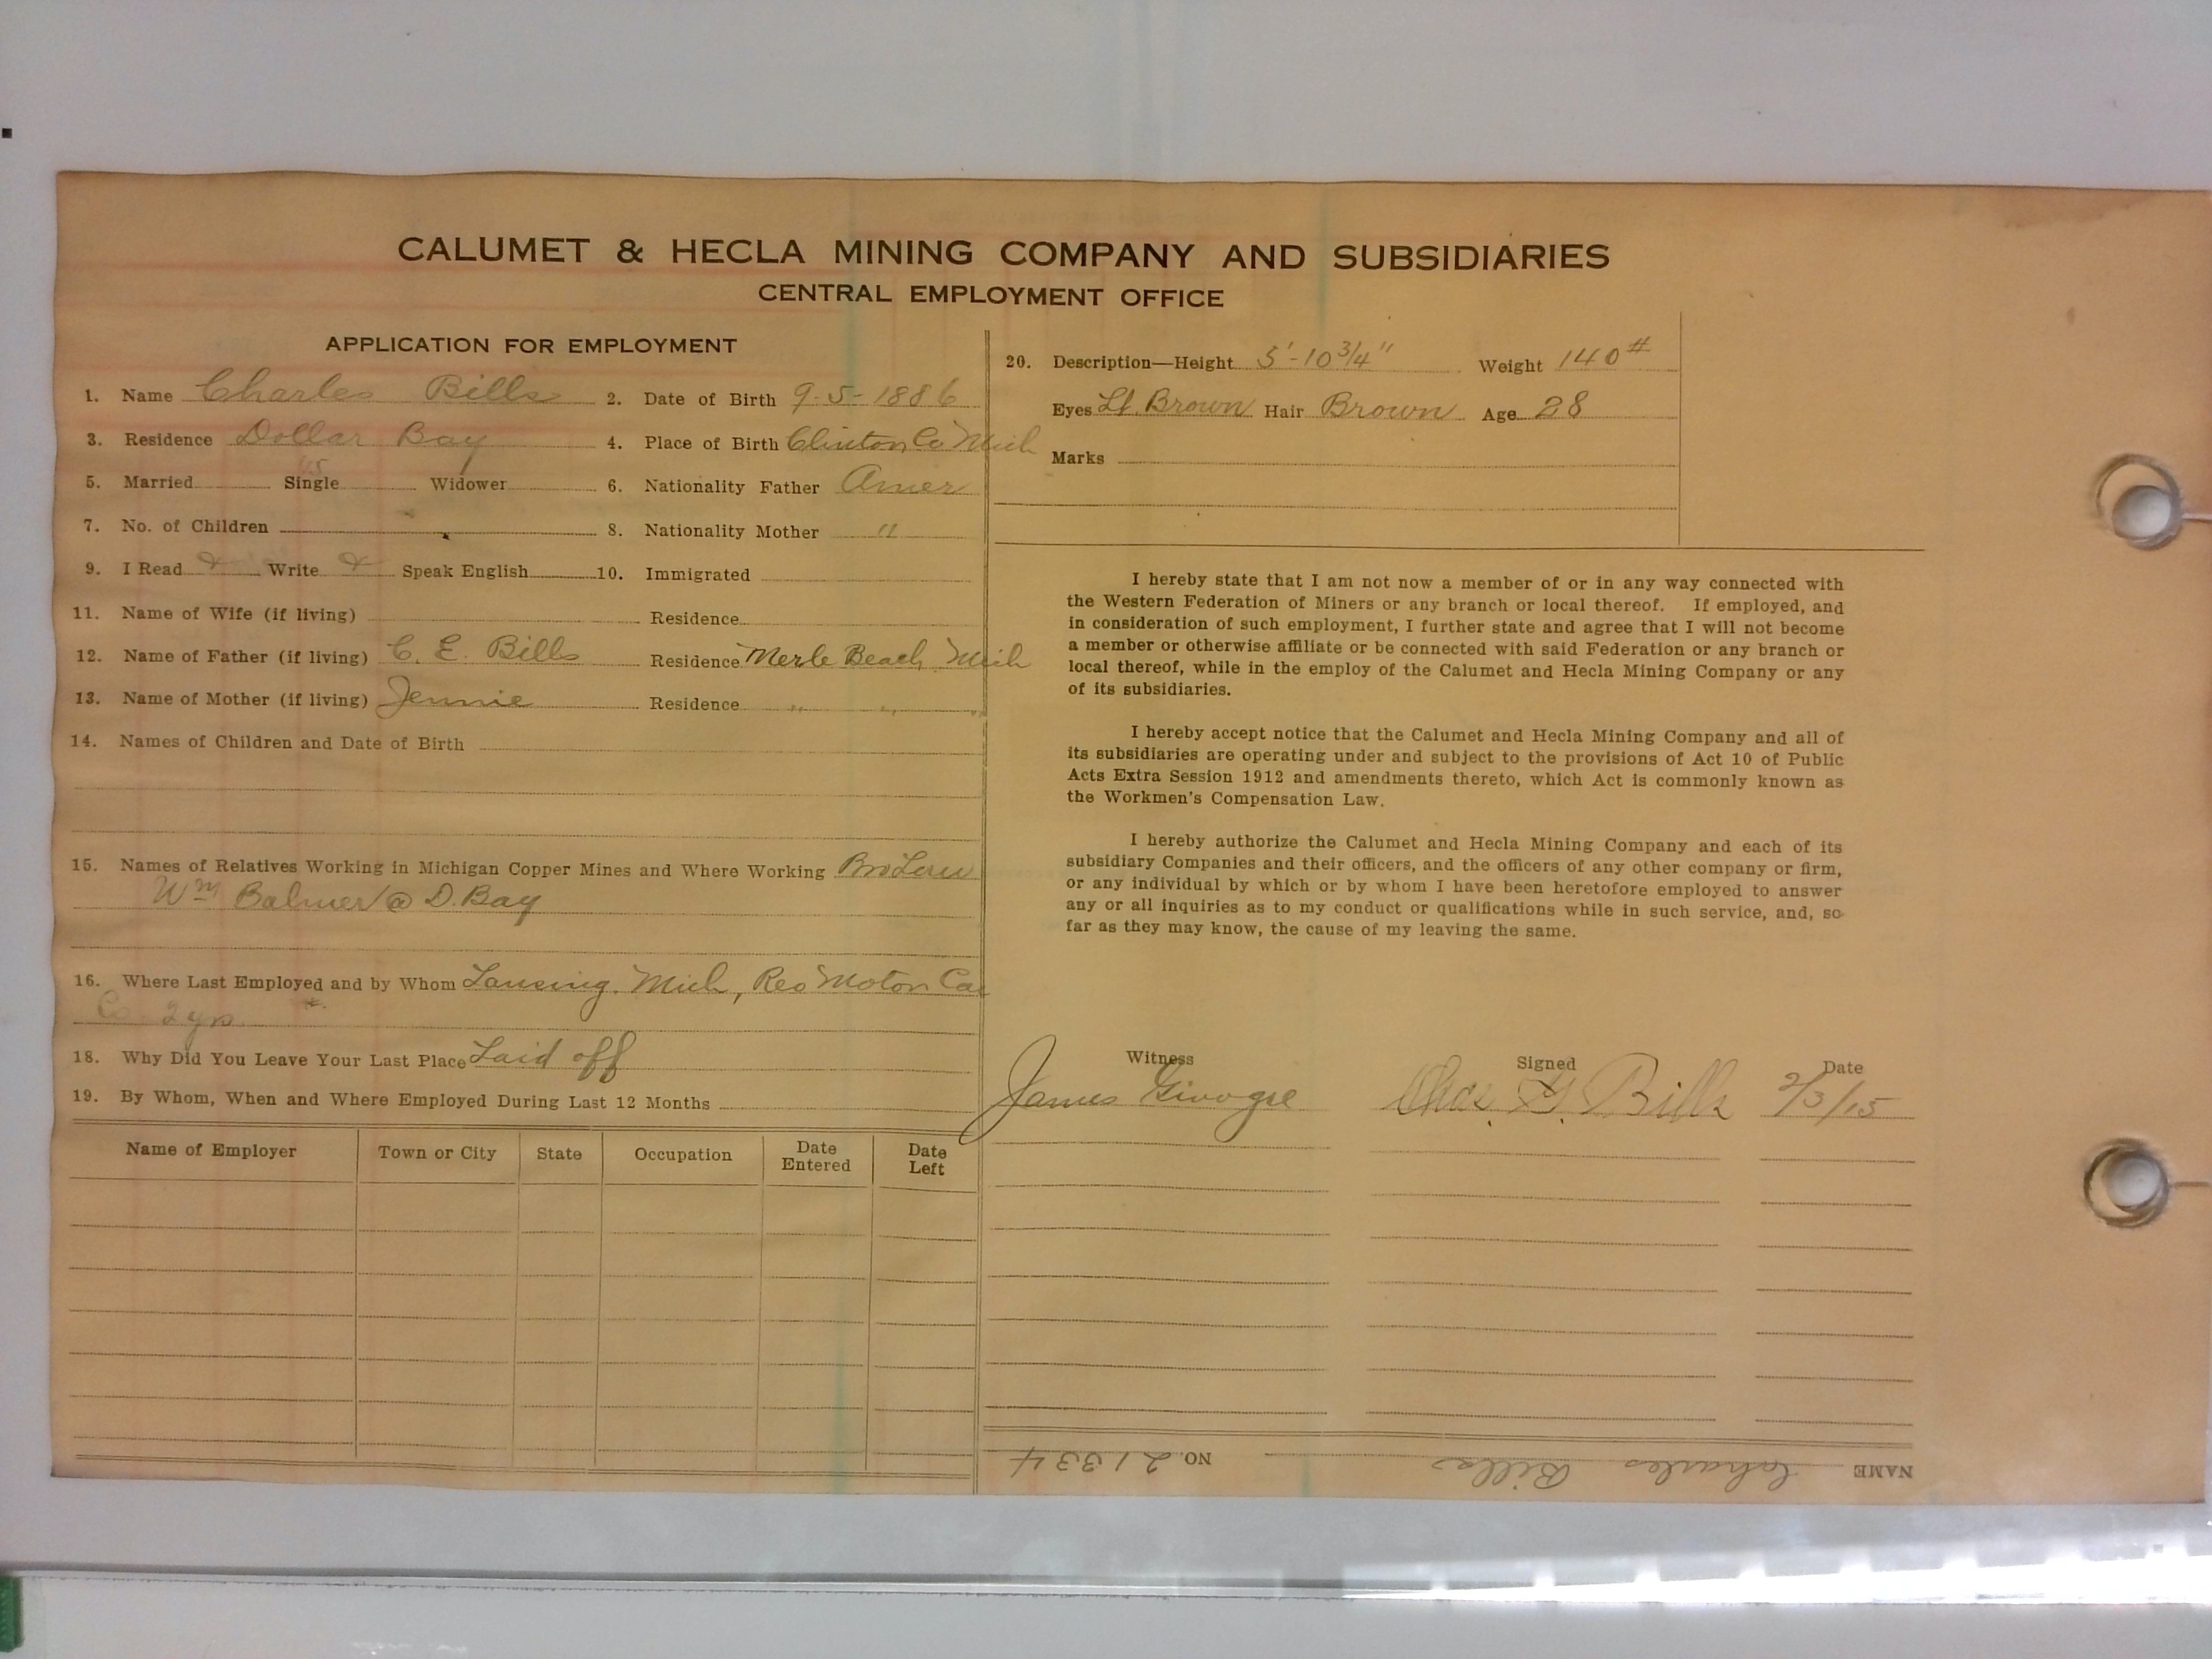 CALUMET & HECLA MINING COMPANY AND SUBSIDIARIES
CENTRAL EMPLOYMENT OFFICE
APPLICATION FOR EMPLOYMENT
1. Name Charles Bills 2. Date of Birth 9-5-1886
3. Residence Dollar Bay 4. Place of Birth Clinton Co Mich
5. Married Single Widower 6. Nationality Father Amer
7. No. of Children 8. Nationality Mother "
9. I Read Write Speak English 10. Immigrated
11. Name of Wife (if living) Residence
12. Name of Father (if living) C. E. Bills Residence Merle Beach, Mich
13. Name of Mother (if living) Jennie Residence " " "
14. Names of Children and Date of Birth
15. Names of Relatives Working in Michigan Copper Mines and Where Working Bro Law
Wm Balmer @ D. Bay
16. Where Last Employed and by Whom Lansing. Mich, Reo Motor Car
Co 2 yrs
18. Why Did You Leave Your Last Place Laid off
19. By Whom, When and Where Employed During Last 12 Months
Name of Employer Town or City State Occupation Date Entered Date Left
20. Description—Height 5'-10 3/4" Weight 140#
Eyes Lt. Brown Hair Brown Age 28
Marks
I hereby state that I am not now a member of or in any way connected with
the Western Federation of Miners or any branch or local thereof. If employed, and
in consideration of such employment, I further state and agree that I will not become
a member or otherwise affiliate or be connected with said Federation or any branch or
local thereof, while in the employ of the Calumet and Hecla Mining Company or any
of its subsidiaries.
I hereby accept notice that the Calumet and Hecla Mining Company and all of
its subsidiaries are operating under and subject to the provisions of Act 10 of Public
Acts Extra Session 1912 and amendments thereto, which Act is commonly known as
the Workmen's Compensation Law.
I hereby authorize the Calumet and Hecla Mining Company and each of its
subsidiary Companies and their officers, and the officers of any other company or firm,
or any individual by which or by whom I have been heretofore employed to answer
any or all inquiries as to my conduct or qualifications while in such service, and, so
far as they may know, the cause of my leaving the same.
Witness Signed Date
James Chas. G. Bills 2/3/15
NAME Charles Bills NO. 21334